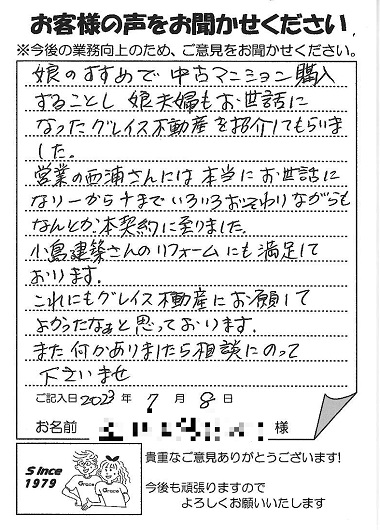 お客様の声をお聞かせください
※今後の業務向上のため、ご意見をお聞かせください。
娘のすすめで中古マンション購入
することし 娘夫婦もお世話に
なったグレイス不動産を紹介してもらいま
した。
営業の西浦さんには本当にお世話に
なり一から十までいろいろおそわりながらも
なんとか本契約に至りました。
小島建築さんのリフォームにも満足して
おります。
これにもグレイス不動産にお願して
よかったなぁと思っております。
また何かありましたら相談にのって
下さいませ
ご記入日 2023 年 7 月 8 日
お名前 様
Since
1979
Grace
Grace
貴重なご意見ありがとうございます!
今後も頑張りますので
よろしくお願いいたします